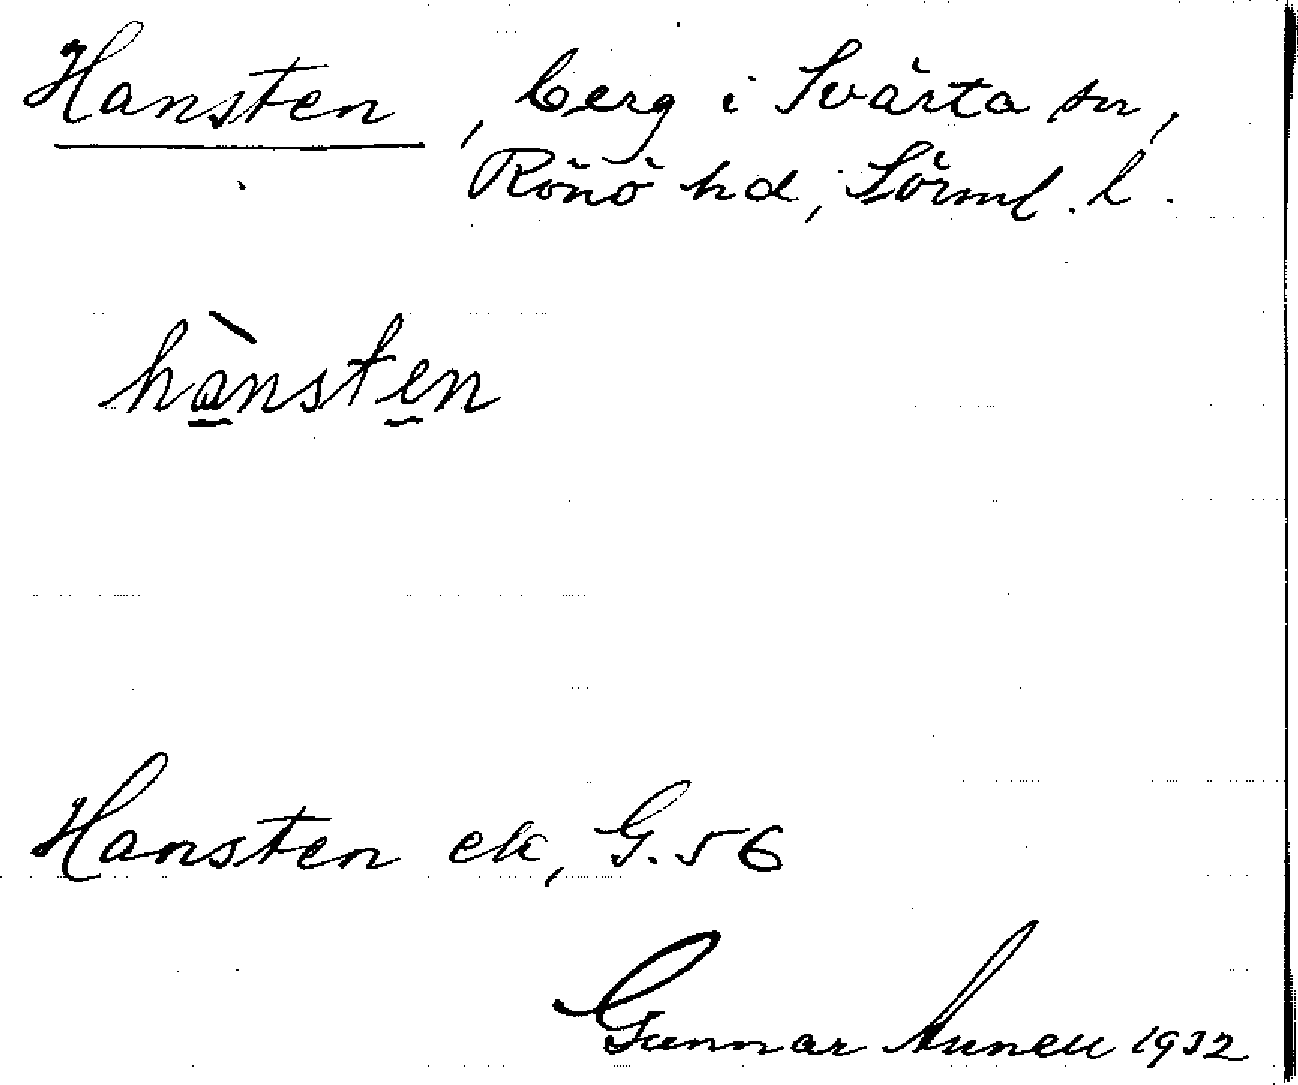 Hansten, berg i Svärta sn,
Rönö hd, Sörml. l.
hànsten
Hansten ek, G. 56
Gunnar 1932